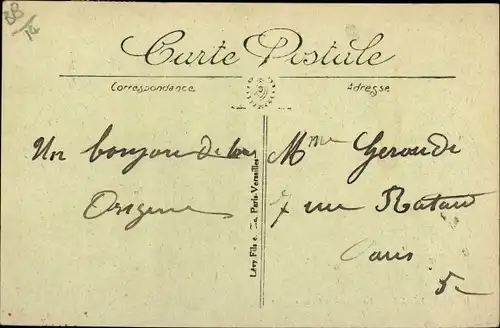 88/14
Carte Postale
Correspondance
Adresse
Un bonjour de
Lévy Fils e Paris-Versailles
Mme Geroudi
7 rue Rataud
Paris
5